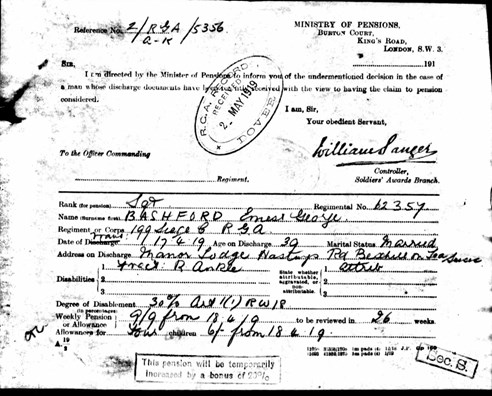 Reference No. 2/RGA/5356
A-K
MINISTRY OF PENSIONS,
BURTON COURT,
KING'S ROAD,
LONDON, S.W. 3.
191
SIR,
I am directed by the Minister of Pensions to inform you of the undermentioned decision in the case of
a man whose discharge documents have been received with the view to having the claim to pension
considered.
R.G.A. RECORD
RECEIVED
2 MAY 1919
DOVER
I am, Sir,
Your obedient Servant,
William Sanger
Controller,
Soldiers' Awards Branch.
To the Officer Commanding
Regiment.
Rank (for pension) Sgt Regimental No. 62357
Name (Surname first) BASHFORD Ernest George
Regiment or Corps 199 Siege B RGA
Date of Discharge Trans. 17 4 19 Age on Discharge 39 Marital Status Married
Address on Discharge Manor Lodge Hastings Rd Bexhill on Sea Sussex
Disabilities 1 Fract. R. Ankle State whether attributable, aggravated, or non-attributable. 1 attrib
2 2
3 3
Degree of Disablement 30% Art 1(1) RW 18
(in percentages)
Weekly Pension or Allowance 9/9 from 18 4 19 to be reviewed in 26 weeks.
Allowances for four children 6/- from 18 4 19.
This pension will be temporarily
increased by a bonus of 20%
Dec. S.